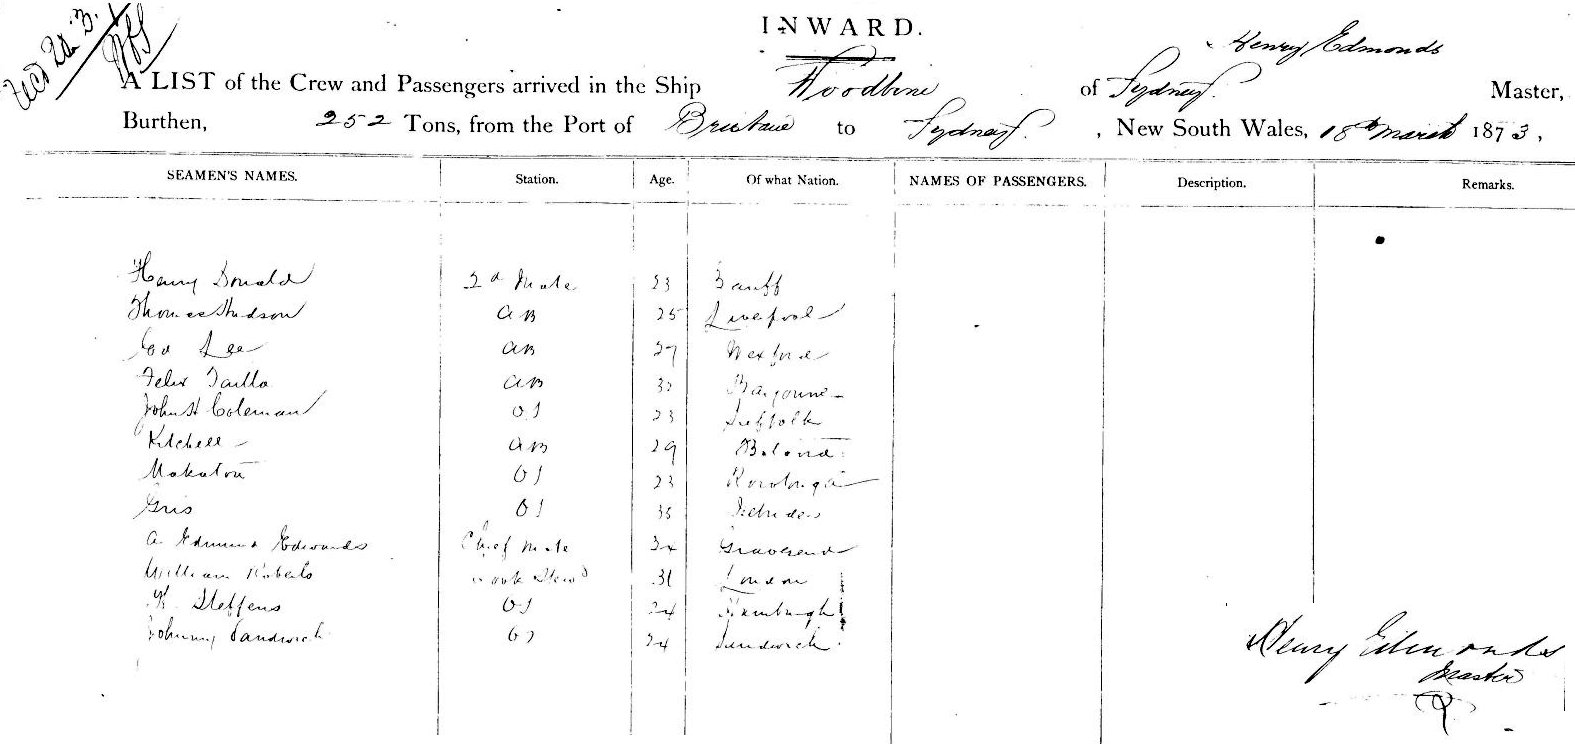 INWARD.
Henry Edmonds
A LIST of the Crew and Passengers arrived in the Ship Woodbine of Sydney Master,
Burthen, 252 Tons, from the Port of Brisbane to Sydney, New South Wales, 18th March 1873,
SEAMEN'S NAMES. Station. Age. Of what Nation. NAMES OF PASSENGERS. Description. Remarks.
Henry Donald 2d Mate 23 Banff
Thomas Hudson AB 25 Liverpool
Ed Lee AB 27 Wexford
Felix AB Bayonne
John H Coleman OS 23 Suffolk
Kitchell AB 29
OS 23
Gris OS 35 Hebrides
A. Edmund Edwards Chief Mate 34 Gravesend
William Roberts Cook Stewd 31 London
K. Steffens OS 24
Johnny Sandwich OS 24 Sandwich
Henry Edmonds
Master